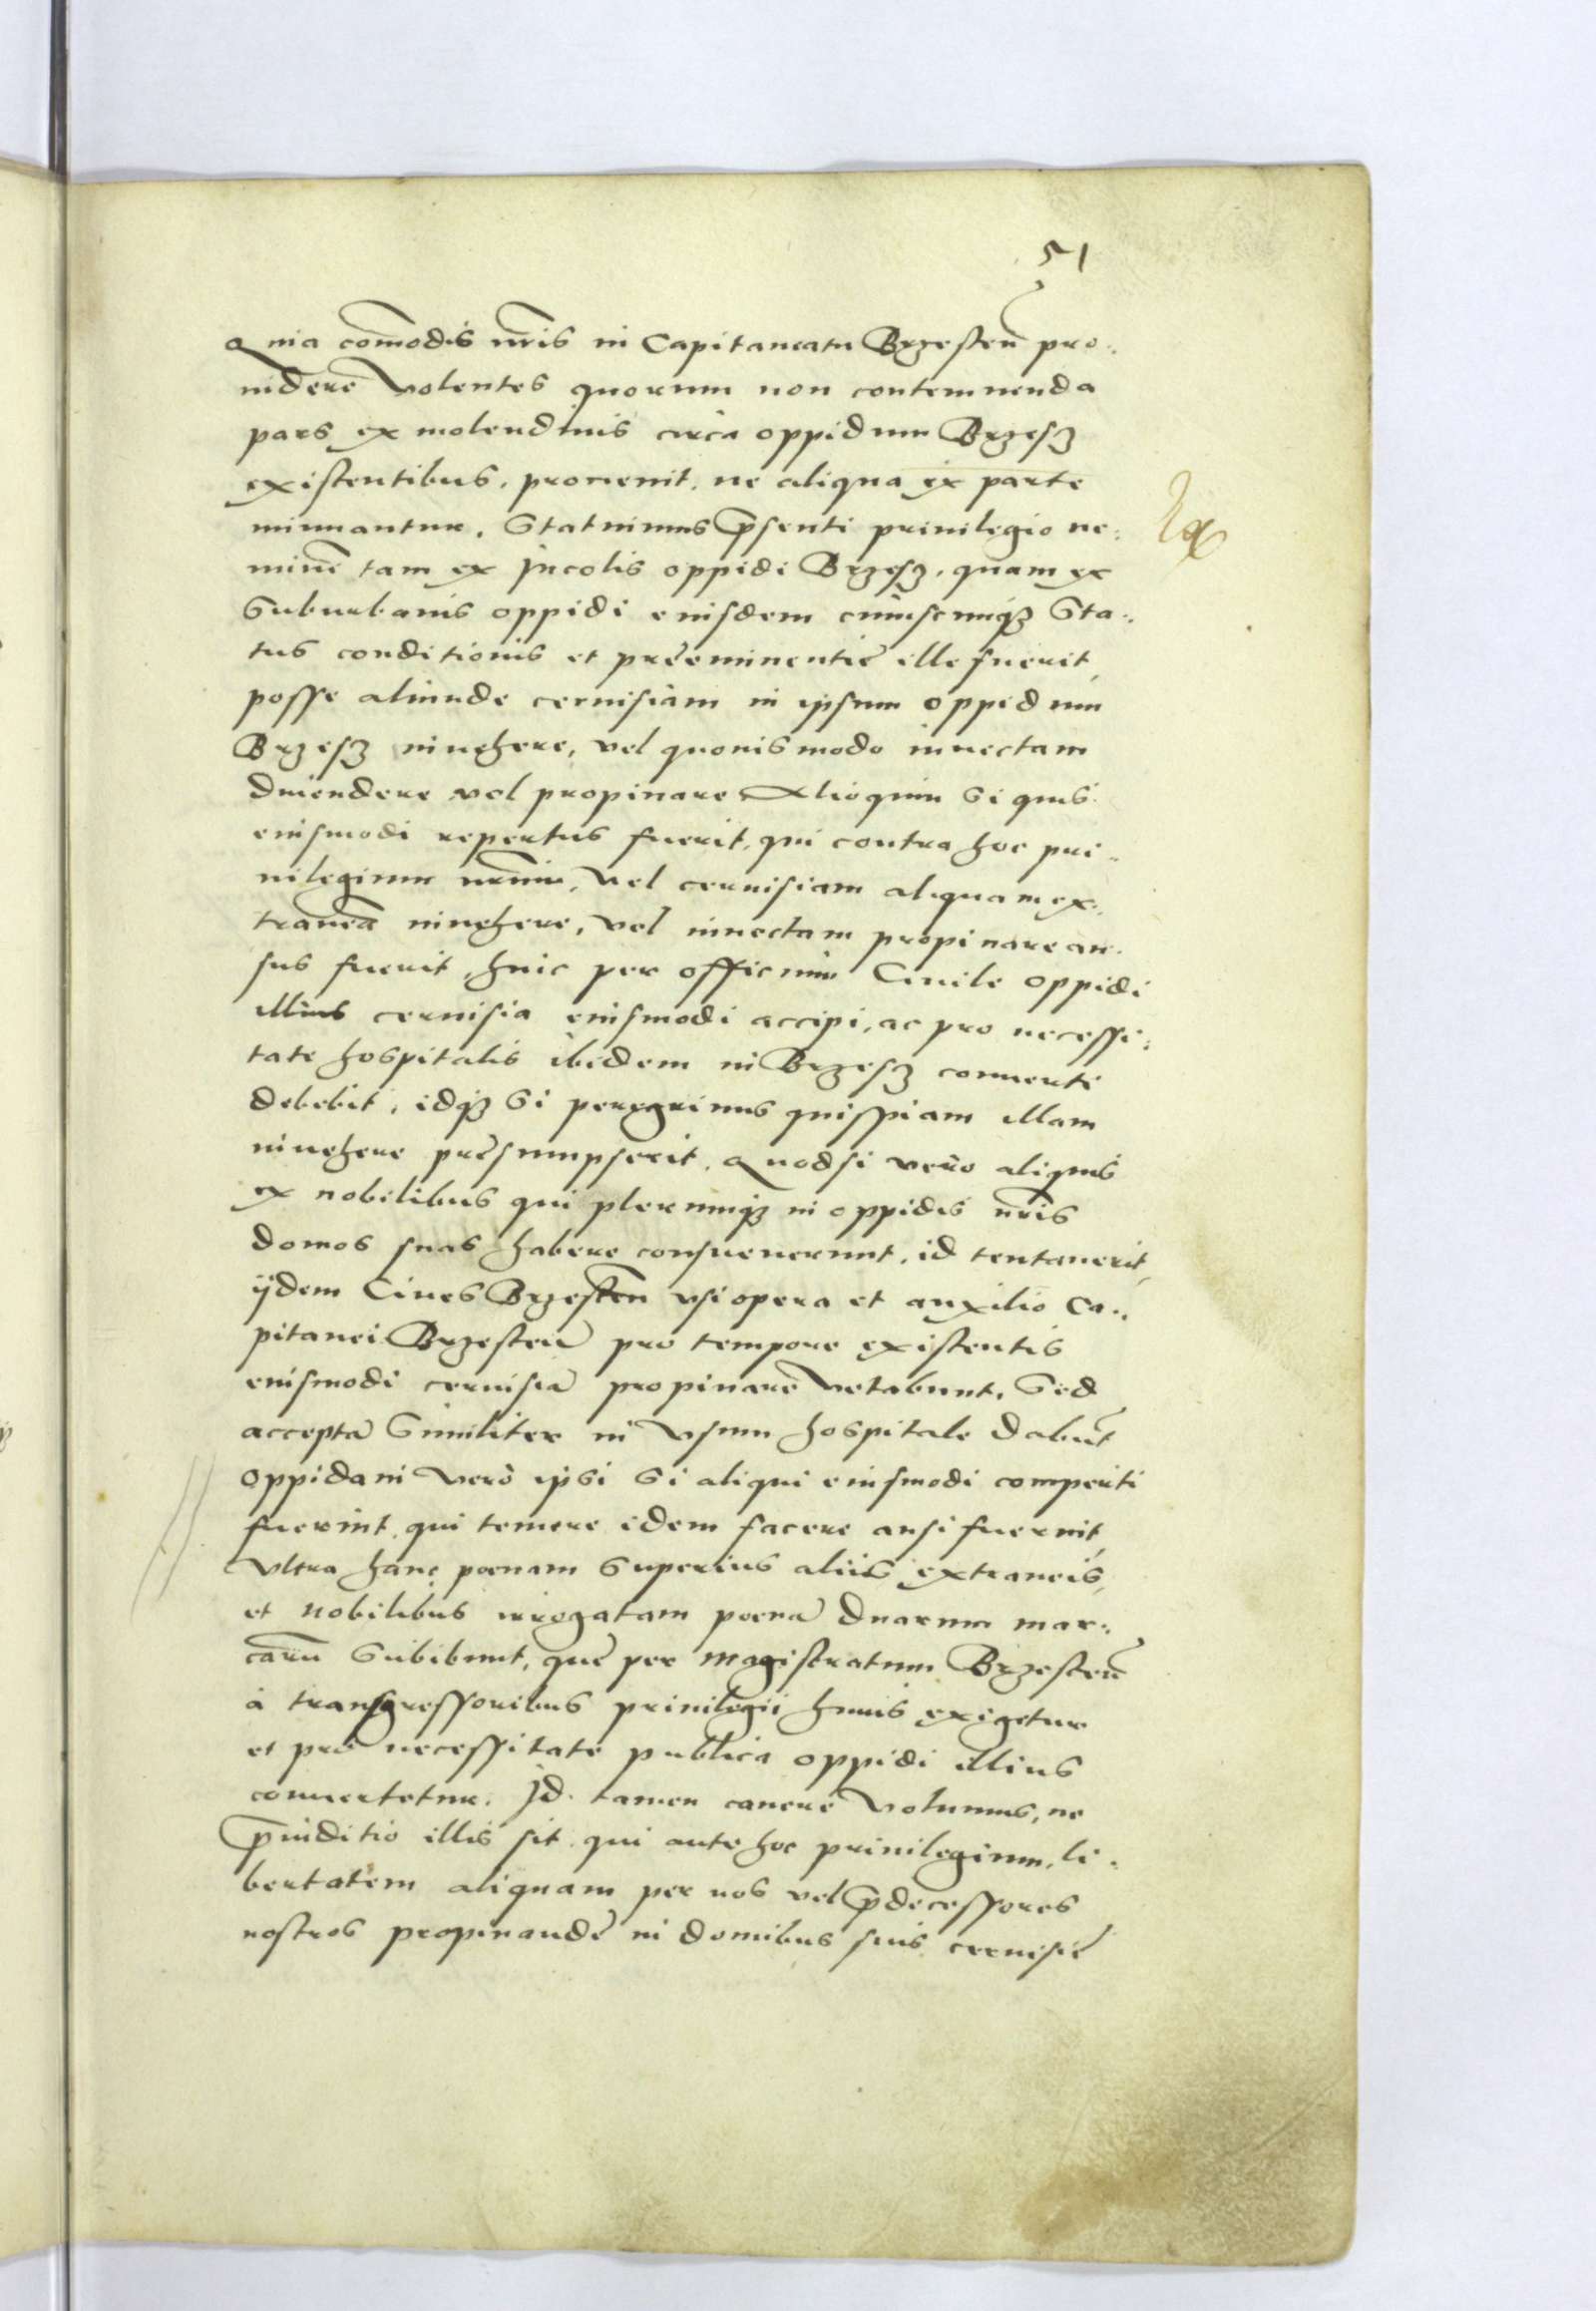 51
Quia com̄odis nr̄is in Capitaneatu Brzesten̄ pro:
uidere volentes quorum non contemnenda
pars ex molendinis circa oppidum Brzesz
existentibus, prouenit, ne aliqua ex parte
minuantur. Statuimus p̄senti priuilegio ne:
minē tam ex Incolis oppidi Brzesz, quam ex
Suburbanis oppidi eiusdem cuiuscunq3 Sta:
tus conditionis et preeminentie ille fuerit,
posse aliunde ceruisiam in ipsum oppidum
Brzesz inuehere, vel quouismodo inuectam
diuendere vel propinare Alioquin Si quis
eiusmodi repertus fuerit, qui contra hoc pri:
uilegium nr̄um, vel ceruisiam aliquam ex:
traneā inuehere, vel inuectam propinare au:
sus fuerit, huic per officium Ciuile oppidi
illius ceruisia eiusmodi accipi, ac pro necessi:
tate hospitalis ibidem in Brzesz conuerti
debebit, idq3 Si peregrinus quispiam illam
inuehere presumpserit. Quodsi vero aliquis
ex nobilibus qui plerumq3 in oppidis nr̄is
domos suas habere consueuerunt, id tentauerit,
ijdem Ciues Brzesten̄ vsi opera et auxilio Ca:
pitanei Brzesten̄ pro tempore existentis
eiusmodi ceruisiā propinare vetabunt, Sed
acceptā Similiter in vsum hospitale dabun̄t
Oppidani verò ipsi Si aliqui eiusmodi comperti
fuerint, qui temere idem facere ausi fuerint,
vltra hanc poenam Superius aliis extraneis,
et nobilibus irrogatam poenā duarum mar:
carū Subibunt, que per magistratum Brzesten̄
à transgressoribus priuilegii huius exigetur
et pro necessitate publica oppidi illius
conuertetur. Id tamen cauere volumus, ne
p̄iuditio illis sit qui ante hoc priuilegium, li:
bertatem aliquam per nos vel p̄decessores
nostros propinande in domibus suis ceruisie